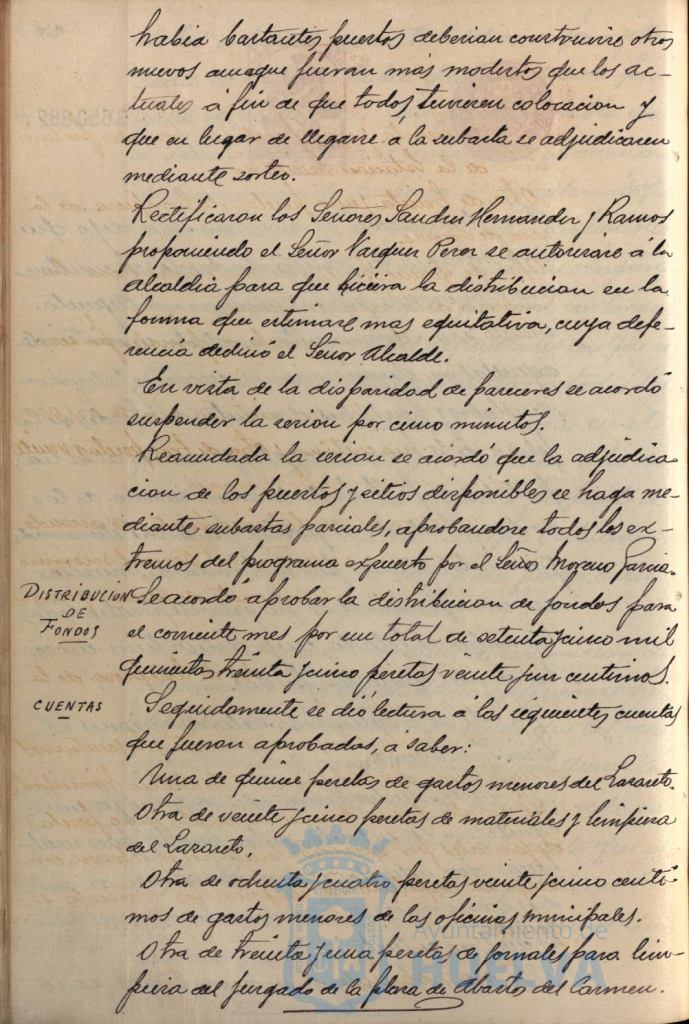 habia bastantes puestos deberian construirse otros
nuevos aunque fueran más modestos que los ac-
tuales á fin de que todos tuvieren colocacion y
que en lugar de llegarse á la subasta se adjudicasen
mediante sorteo.
Rectificaron los Señores Hernandez y Ramos
proponiendo el Señor Vazquez Perez se autorizase á la
alcaldia para que hiciera la distribucion en la
forma que estimare mas equitativa, cuya defe-
rencia declinó el Señor Alcalde.
En vista de la disparidad de pareceres se acordó
suspender la sesion por cinco minutos.
Reanudada la sesion se acordó que la adjudica-
cion de los puestos y sitios disponibles se haga me-
diante subastas parciales, aprobandose todos los ex-
tremos del programa expuesto por el Señor Moreno Garcia.
DISTRIBUCION
DE
FONDOS
Se acordó aprobar la distribucion de fondos para
el corriente mes por un total de setenta y cinco mil
quinientas treinta y cinco pesetas veinte y un centimos.
CUENTAS
Seguidamente se dió lectura á las siguientes cuentas
que fueron aprobadas, á saber:
Una de quince pesetas de gastos menores del Lazareto.
Otra de veinte y cinco pesetas de materiales y limpieza
del Lazareto.
Otra de ochenta y cuatro pesetas veinte y cinco centi-
mos de gastos menores de las oficinas municipales.
Otra de treinta y una pesetas de jornales para lim-
pieza del juzgado de la plaza de Abastos del Carmen.
Ayuntamiento de
HUELVA